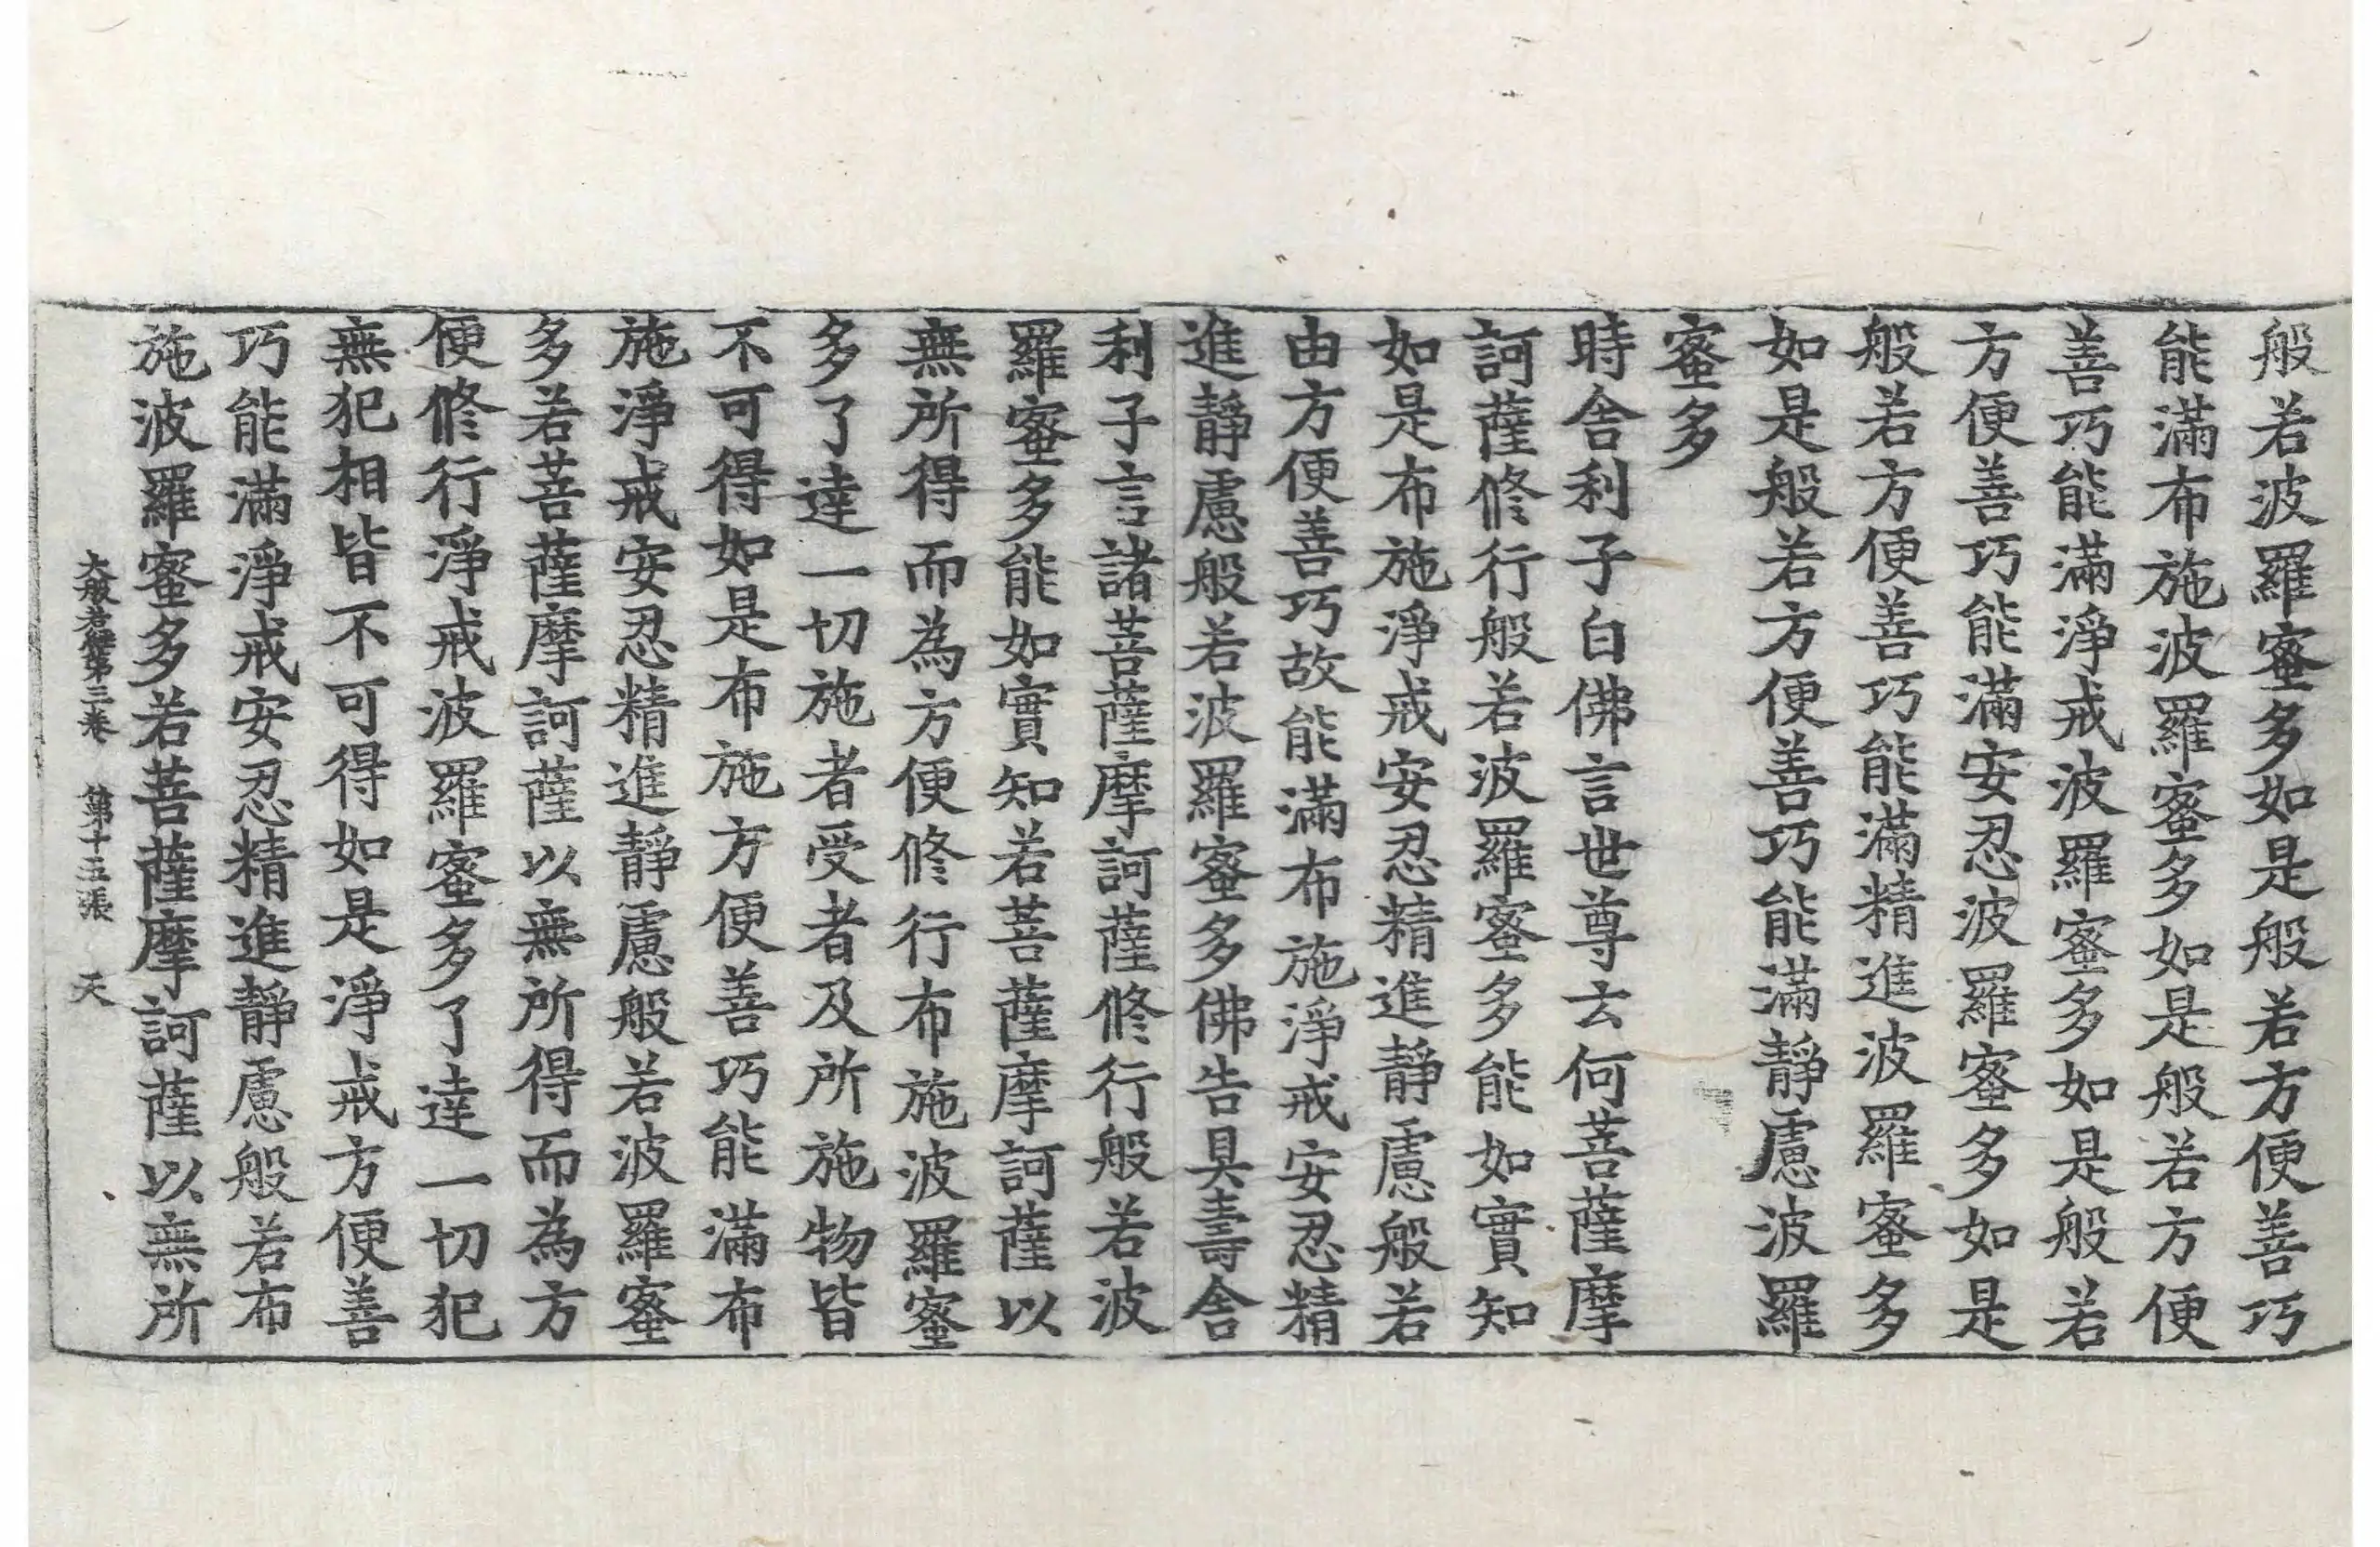 般若波羅蜜多如是般若方便善巧
能滿布施波羅蜜多如是般若方便
善巧能滿淨戒波羅蜜多如是般若
方便善巧能滿安忍波羅蜜多如是
般若方便善巧能滿精進波羅蜜多
如是般若方便善巧能滿靜慮波羅
蜜多
時舍利子白佛言世尊云何菩薩摩
訶薩修行般若波羅蜜多能如實知
如是布施淨戒安忍精進靜慮般若
由方便善巧故能滿布施淨戒安忍精
進靜慮般若波羅蜜多佛告具壽舍
利子言諸菩薩摩訶薩修行般若波
羅蜜多能如實知若菩薩摩訶薩以
無所得而為方便修行布施波羅蜜
多了達一切施者受者及所施物皆
不可得如是布施方便善巧能滿布
施淨戒安忍精進靜慮般若波羅蜜
多若菩薩摩訶薩以無所得而為方
便修行淨戒波羅蜜多了達一切犯
無犯相皆不可得如是淨戒方便善
巧能滿淨戒安忍精進靜慮般若布
施波羅蜜多若菩薩摩訶薩以無所
大般若經第三卷 第十五張 天